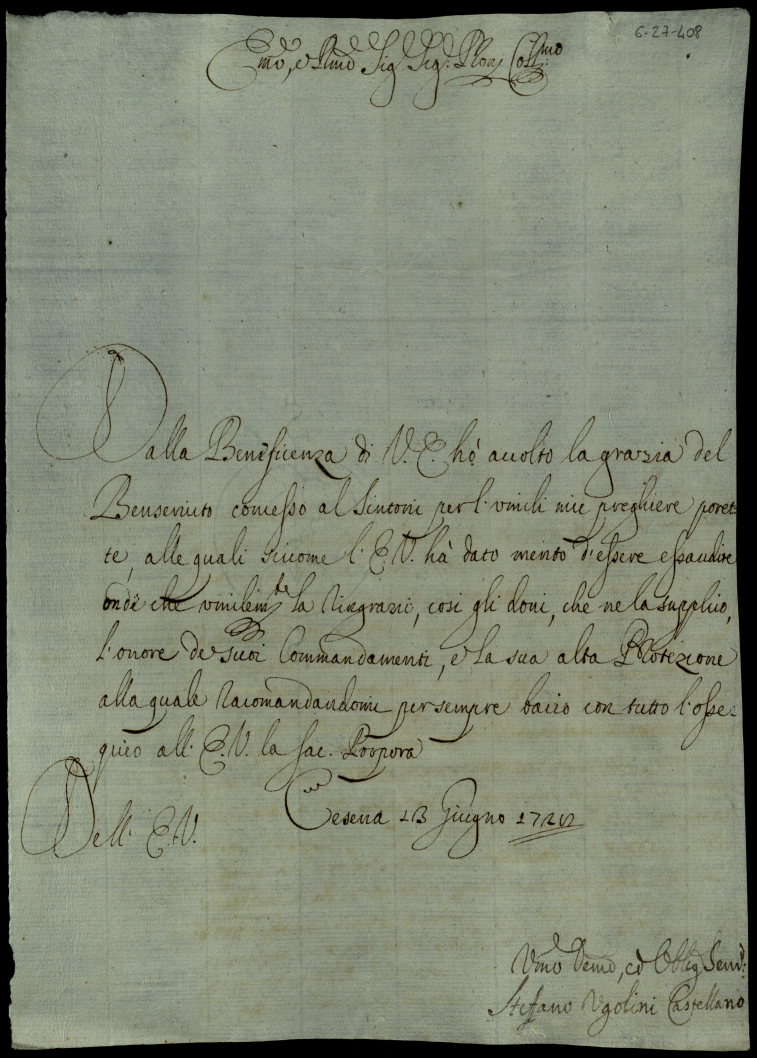 6-27-408
Emo, e Rmo Sig Sig: Pron Coll:mo
Dalla Beneficenza di V. E. hò accolto la grazia del
Benservito concesso al Sintoni per l'umili mie preghiere poret:
te, alle quali siccome l'E.V. hà dato merito d'essere essaudite
onde che umilem:te la Ringrazii, così gli doni, che ne la supplico,
l'onore de suoi Commandamenti, e la sua alta Protezione
alla quale racomandandomi per sempre bacio con tutto l'osse:
quio all' E.V. la Sac. Porpora
Dell' E.V. Cesena 13 Giugno
Umo Demo, ed Oblig Serv:
Steffano Ugolini Castellano